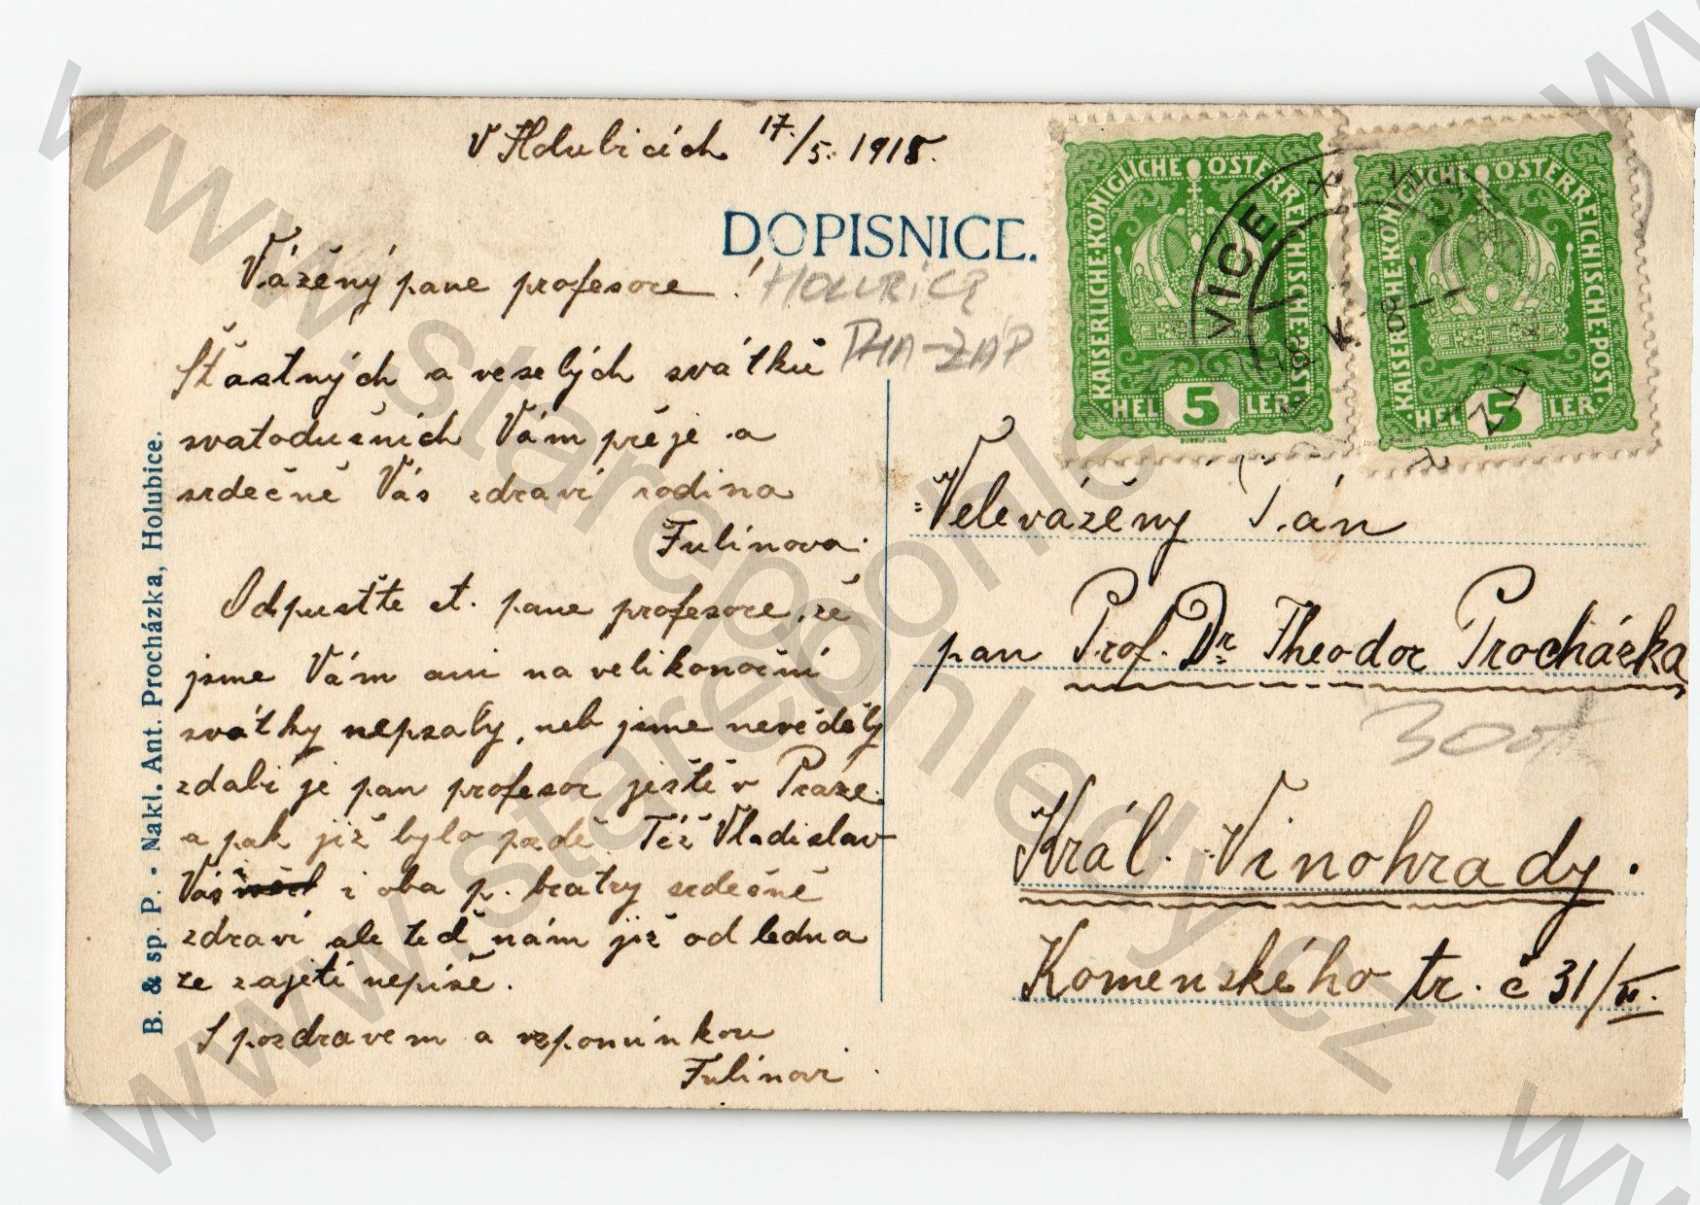 V Holubicích 17./5. 1918.
DOPISNICE.
Vážený pane profesore!
HOLUBICE
PHA-ZÁP
Štastných a veselých svátků
svatodušních Vám přeje a
srdečně Vás zdraví rodina
Fulínova.
Odpusťte ct. pane profesore, že
jsme Vám ani na velikonoční
svátky nepsaly, neb jsme nevěděly
zdali je pan profesor ještě v Praze.
a pak již bylo pozdě. Též Vladislav
Vás i oba p. bratry srdečně
zdraví ale teď nám již od ledna
ze zajetí nepíše.
S pozdravem a vzpomínkou
Fulínovi.
B. & sp. P. • Nakl. Ant. Procházka, Holubice.
KAISERLICHE·KÖNIGLICHE ÖSTERREICHISCHE·POST·
5 HELLER
KAISERLICHE·KÖNIGLICHE ÖSTERREICHISCHE·POST·
5 HELLER
VICE *
Velevážený Pán
pan Prof. Dr. Theodor Procházka
300
Král. Vinohrady.
Komenského tr. č 31/II.
www.starepohledy.cz
www.starepohledy.cz